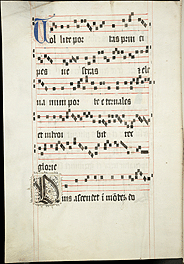 Tollite por tas prin ci
pes ve stras et ele
va mini por te eternales
et introi bit rex
glorie
Quis ascendet i mōtē do